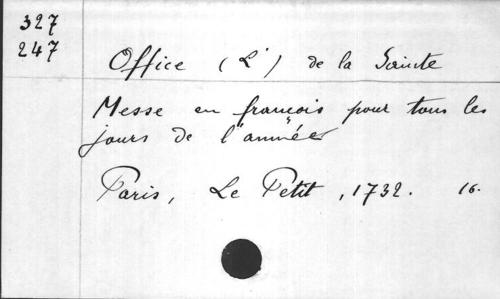 327
247
Office (L') de la Sainte
Messe en françois pour tous les
jours de l'année
Paris, Le Petit, 1732. 16.